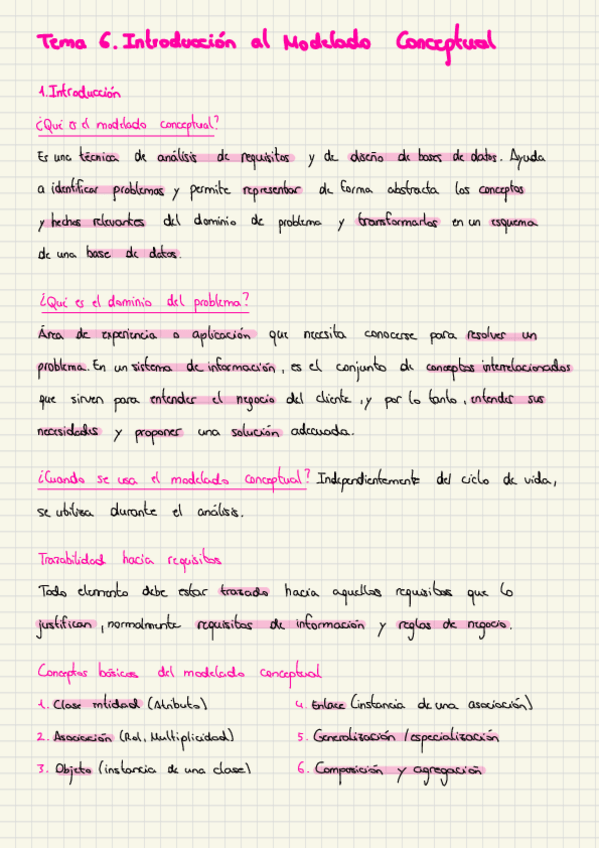 Tema 6. Introducción al Modelado Conceptual
1. Introducción
¿Qué es el modelado conceptual?
Es una técnica de análisis de requisitos y de diseño de bases de datos. Ayuda
a identificar problemas y permite representar de forma abstracta los conceptos
y hechos relevantes del dominio de problema y transformarlos en un esquema
de una base de datos.
¿Qué es el dominio del problema?
Área de experiencia o aplicación que necesita conocerse para resolver un
problema. En un sistema de información, es el conjunto de conceptos interrelacionados
que sirven para entender el negocio del cliente, y por lo tanto, entender sus
necesidades y proponer una solución adecuada.
¿Cuando se usa el modelado conceptual? Independientemente del ciclo de vida,
se utiliza durante el análisis.
Trazabilidad hacia requisitos
Todo elemento debe estar trazado hacia aquellos requisitos que lo
justifican, normalmente requisitos de información y reglas de negocio.
Conceptos básicos del modelado conceptual
1. Clase entidad (Atributo)
2. Asociación (Rol, Multiplicidad)
3. Objeto (instancia de una clase)
4. Enlace (instancia de una asociación)
5. Generalización / especialización
6. Composición y agregación